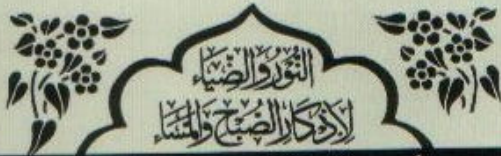 النُّورُ وَالضِّيَاء
لِأَذْكَارِ الصَّبَاحِ وَالمَسَاء